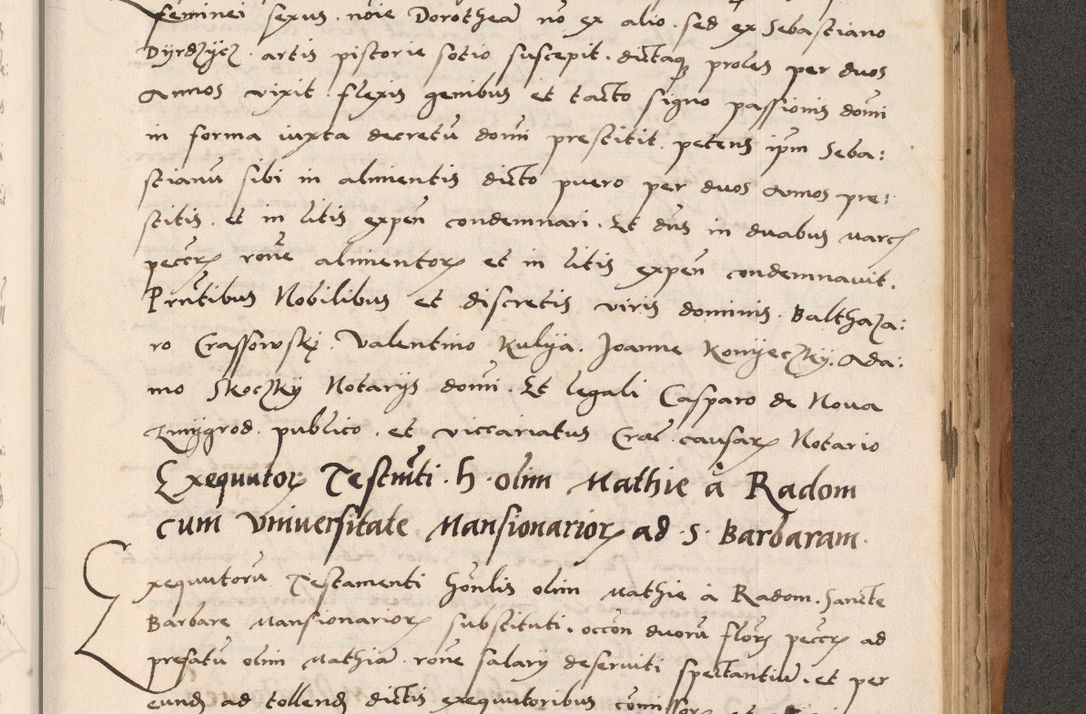 feminei sexus. nõie Dorotheã nõ ex alio. sed ex Sebastiano
Dÿrdzÿcz. artis pistorie sotio suscepit. dictaq3 proles per duos
Annos vixit. flexis genibus et tacto signo passionis domi
in forma iuxta decretũ domi prestitit. petens ipm Seba:
stianũ sibi in alimentis dicto puero per duos Annos pre:
stitis. et in litis expeñ condemnari. Et dñs in duabus marcꝭ
peccꝝ rõne alimentoꝝ et in litis expeñ condemnavit.
Prñtibus Nobilibus et discretis viris dominis. Balthaza:
ro Crassowskj. Valentino Kulija. Joanne Konyeczkÿ. Ada:
mo Skoczkÿ Notarijs domi. Et legali Casparo de Nova
Zmÿgrod. publico. et viccariatus Crac̃. causaꝝ Notario
Exequutoꝝ Testm̃ti. h. olim Mathie à Radom
cum Vniversitate Mansionarioꝝ ad. S. Barbaram.
Exequutorũ Testamenti hõnlis olim Mathie à Radom. Sancte
Barbare Mansionarioꝝ substituti. occõn duorũ floꝝ peccꝝ ad
prefatũ olim Mathiã. rõne salarÿ deserviti spectantiũ. et per
eund ad tollend dictis exequutoribus